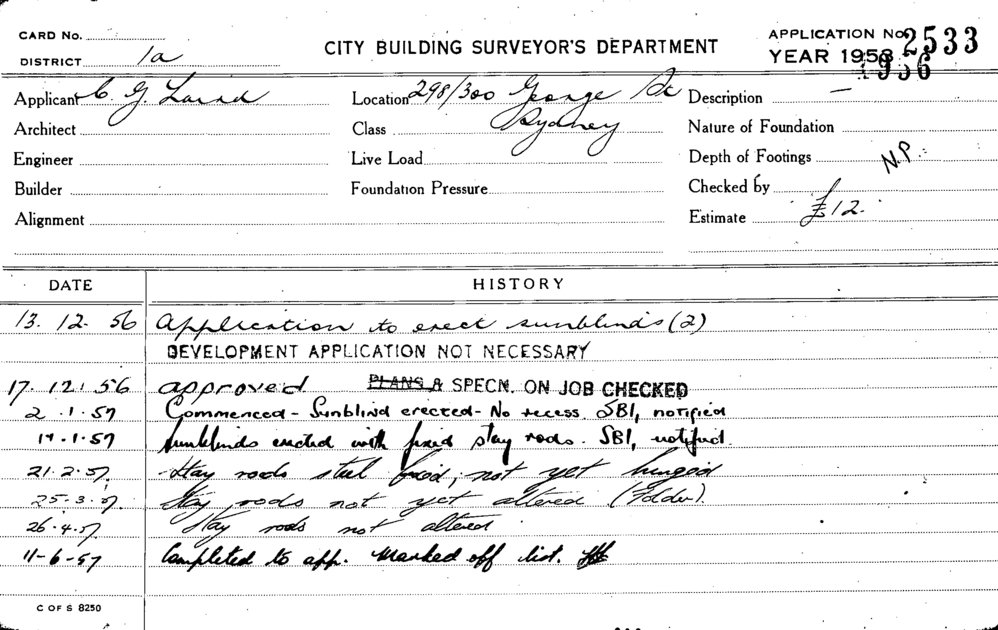 CARD No.
DISTRICT 1a
CITY BUILDING SURVEYOR'S DEPARTMENT
APPLICATION No. 2533
YEAR 1958 1956
Applicant C. G. Laird
Location 298/300 George St
Sydney
Description —
Architect
Class
Nature of Foundation
Engineer
Live Load
Depth of Footings N.P.
Builder
Foundation Pressure
Checked by
Alignment
Estimate £12.
DATE HISTORY
13. 12. 56 Application to erect sunblinds (2)
DEVELOPMENT APPLICATION NOT NECESSARY
17. 12. 56 approved PLANS & SPECN. ON JOB CHECKED
2. 1. 57 Commenced - Sunblind erected - No recess SBI, notified
14. 1. 57 Sunblinds erected with fixed stay rods. SBI, notified.
21. 2. 57. Stay rods still fixed, not yet hinged
25. 3. 57 Stay rods not yet altered (Folder).
26. 4. 57 Stay rods not altered
11-6-57 Completed to app. Marked off list.
C OF S 8250